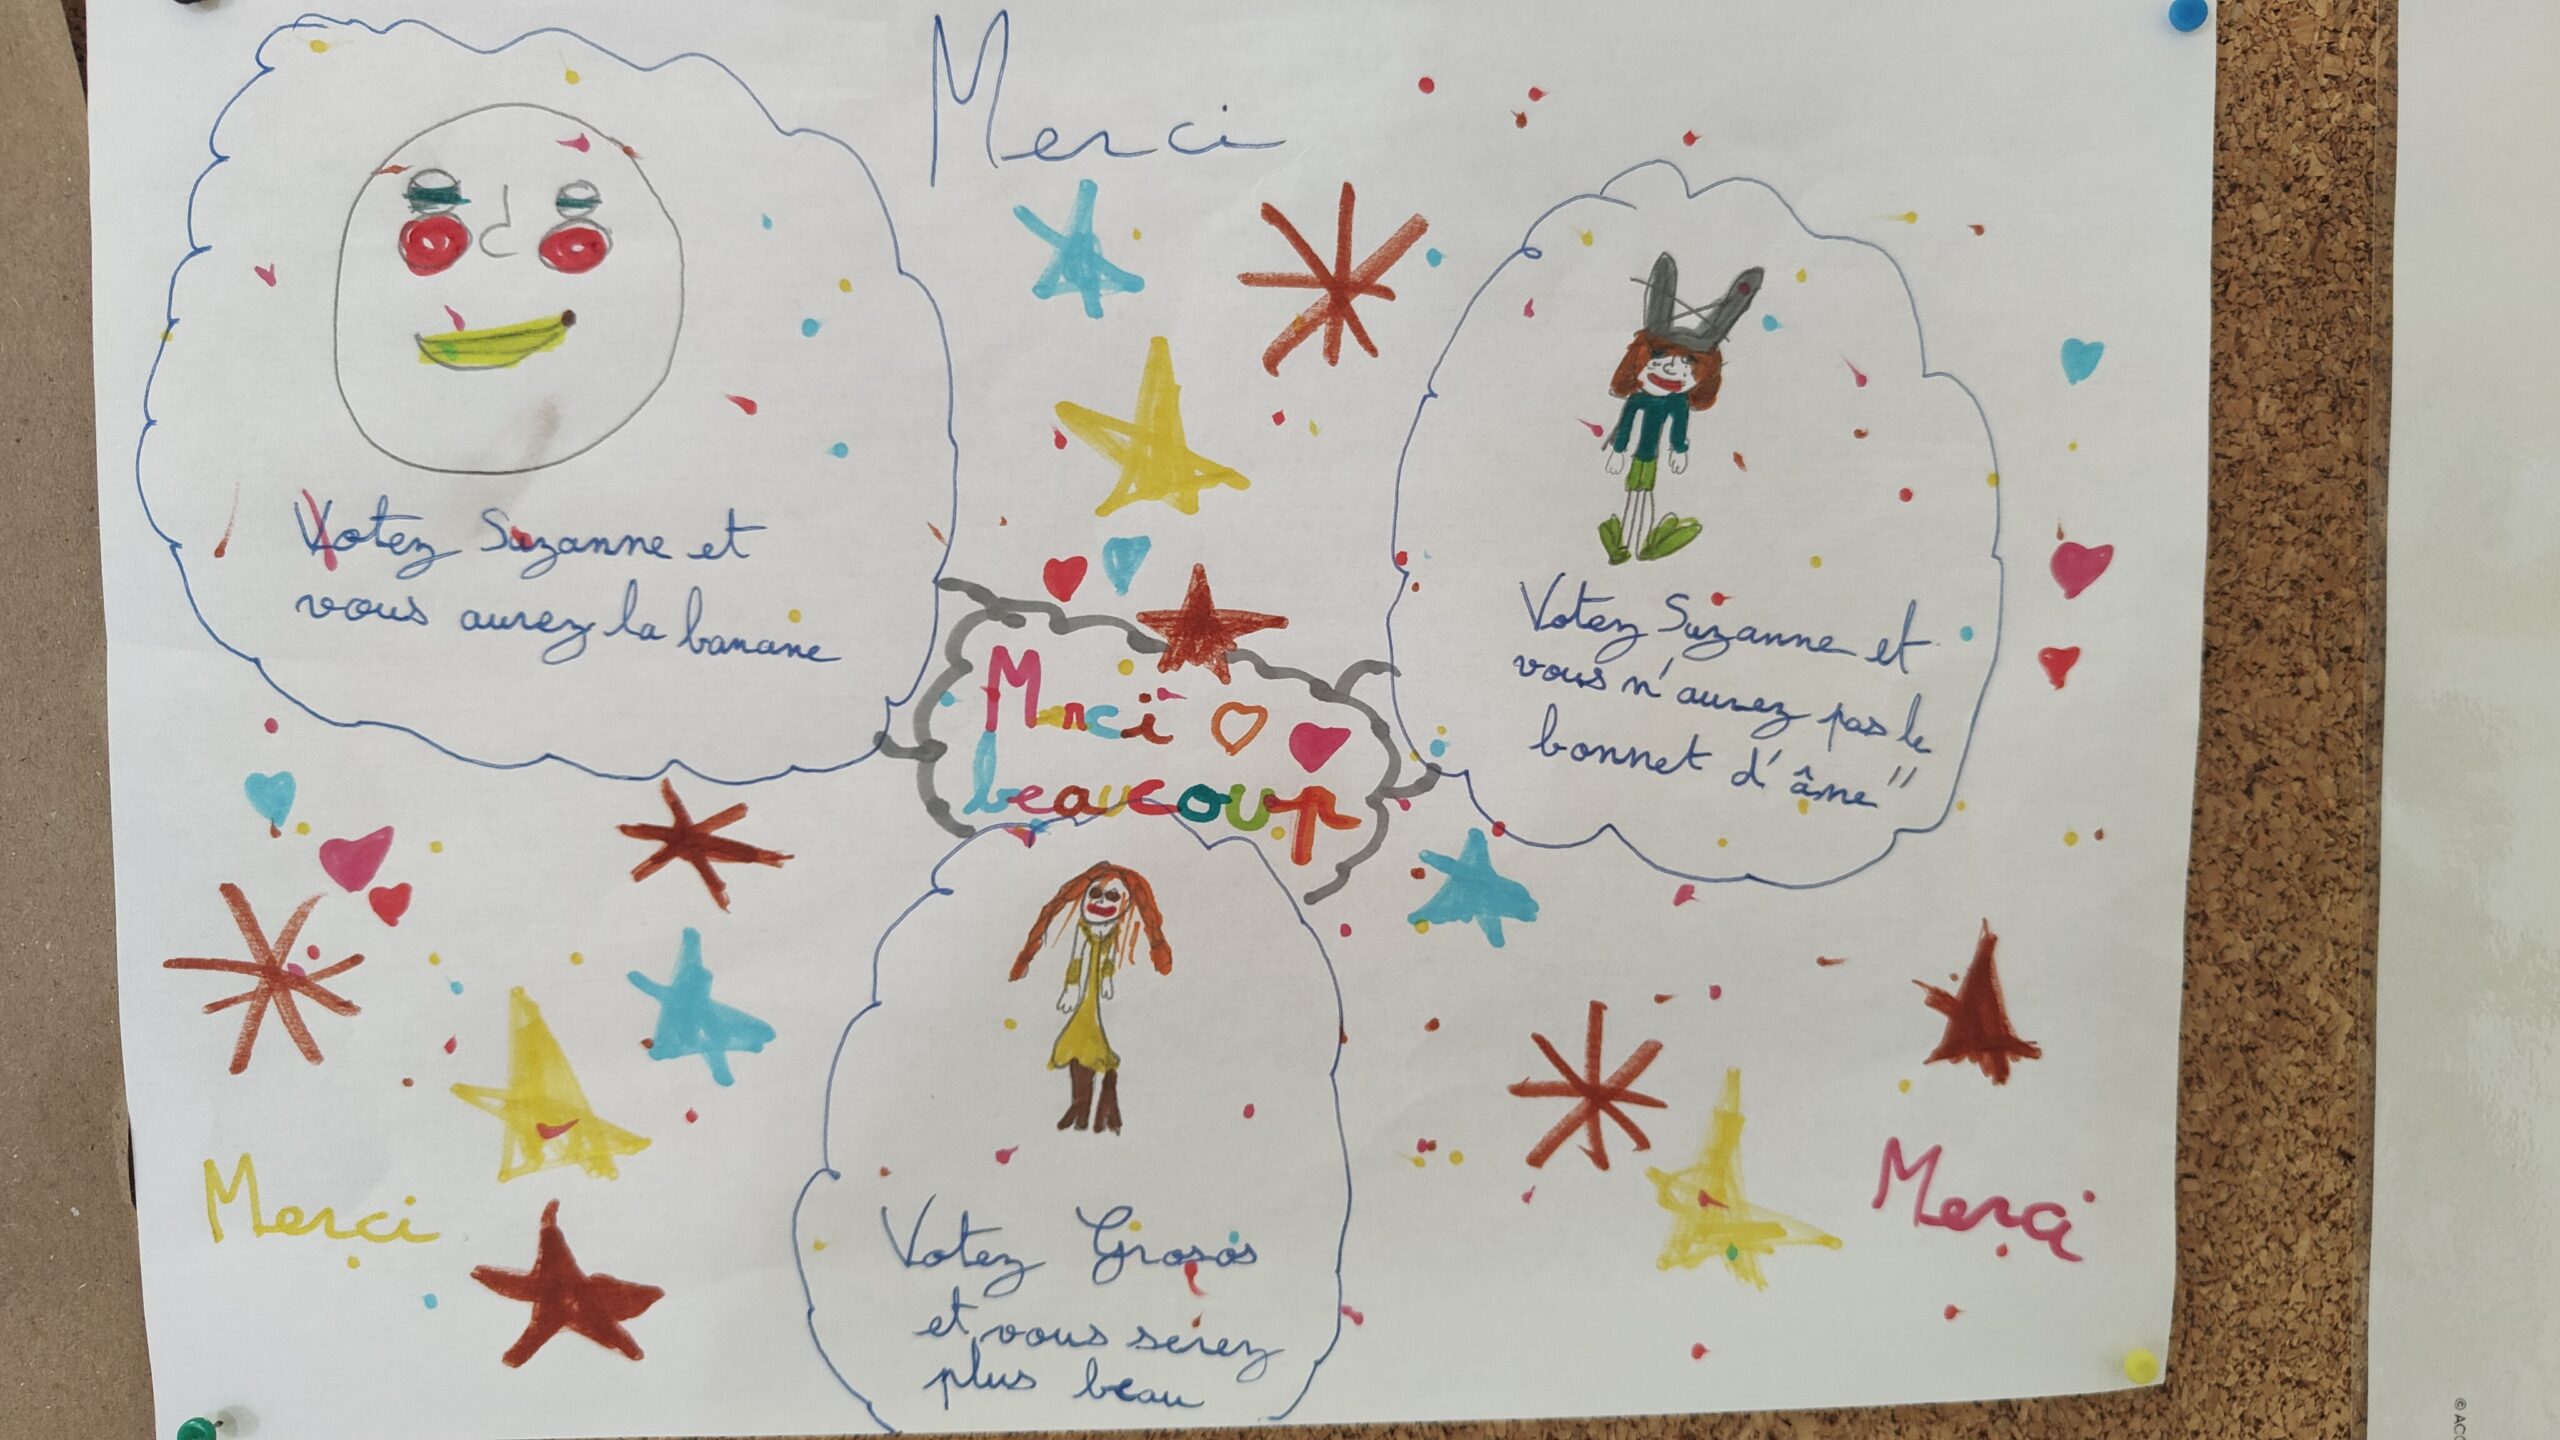 Merci
Votez Suzanne et
vous aurez la banane
Votez Suzanne et
vous n'aurez pas le
bonnet d'âme"
Merci
beaucoup
Votez Grosos
et vous serez
plus beau
Merci
Merci